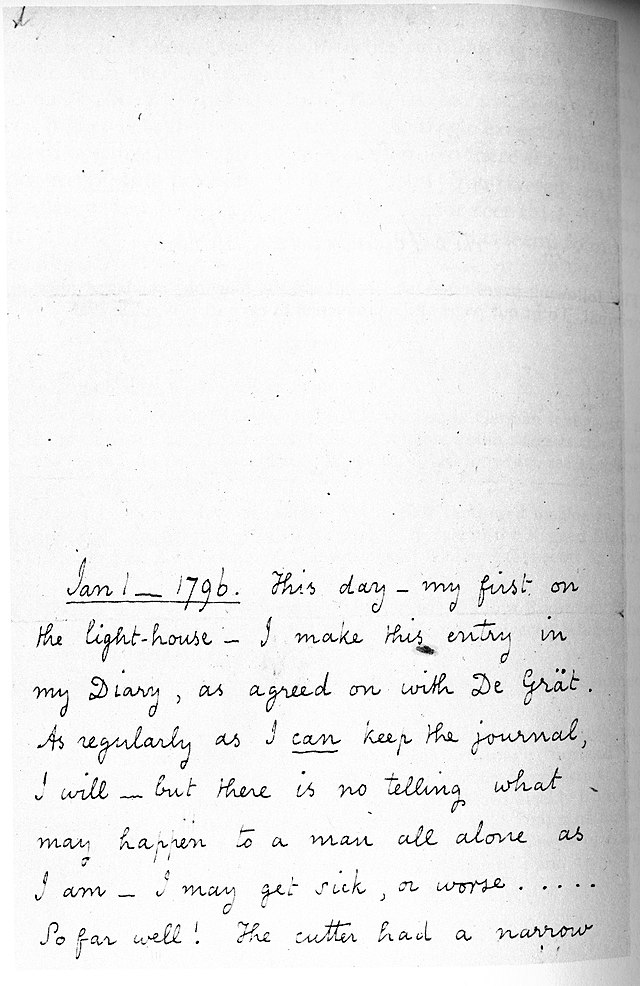 Jan 1 — 1796. This day — my first on
the light-house — I make this entry in
my Diary, as agreed on with De Grät.
As regularly as I can keep the journal,
I will — but there is no telling what
may happen to a man all alone as
I am — I may get sick, or worse . . . . .
So far well! The cutter had a narrow